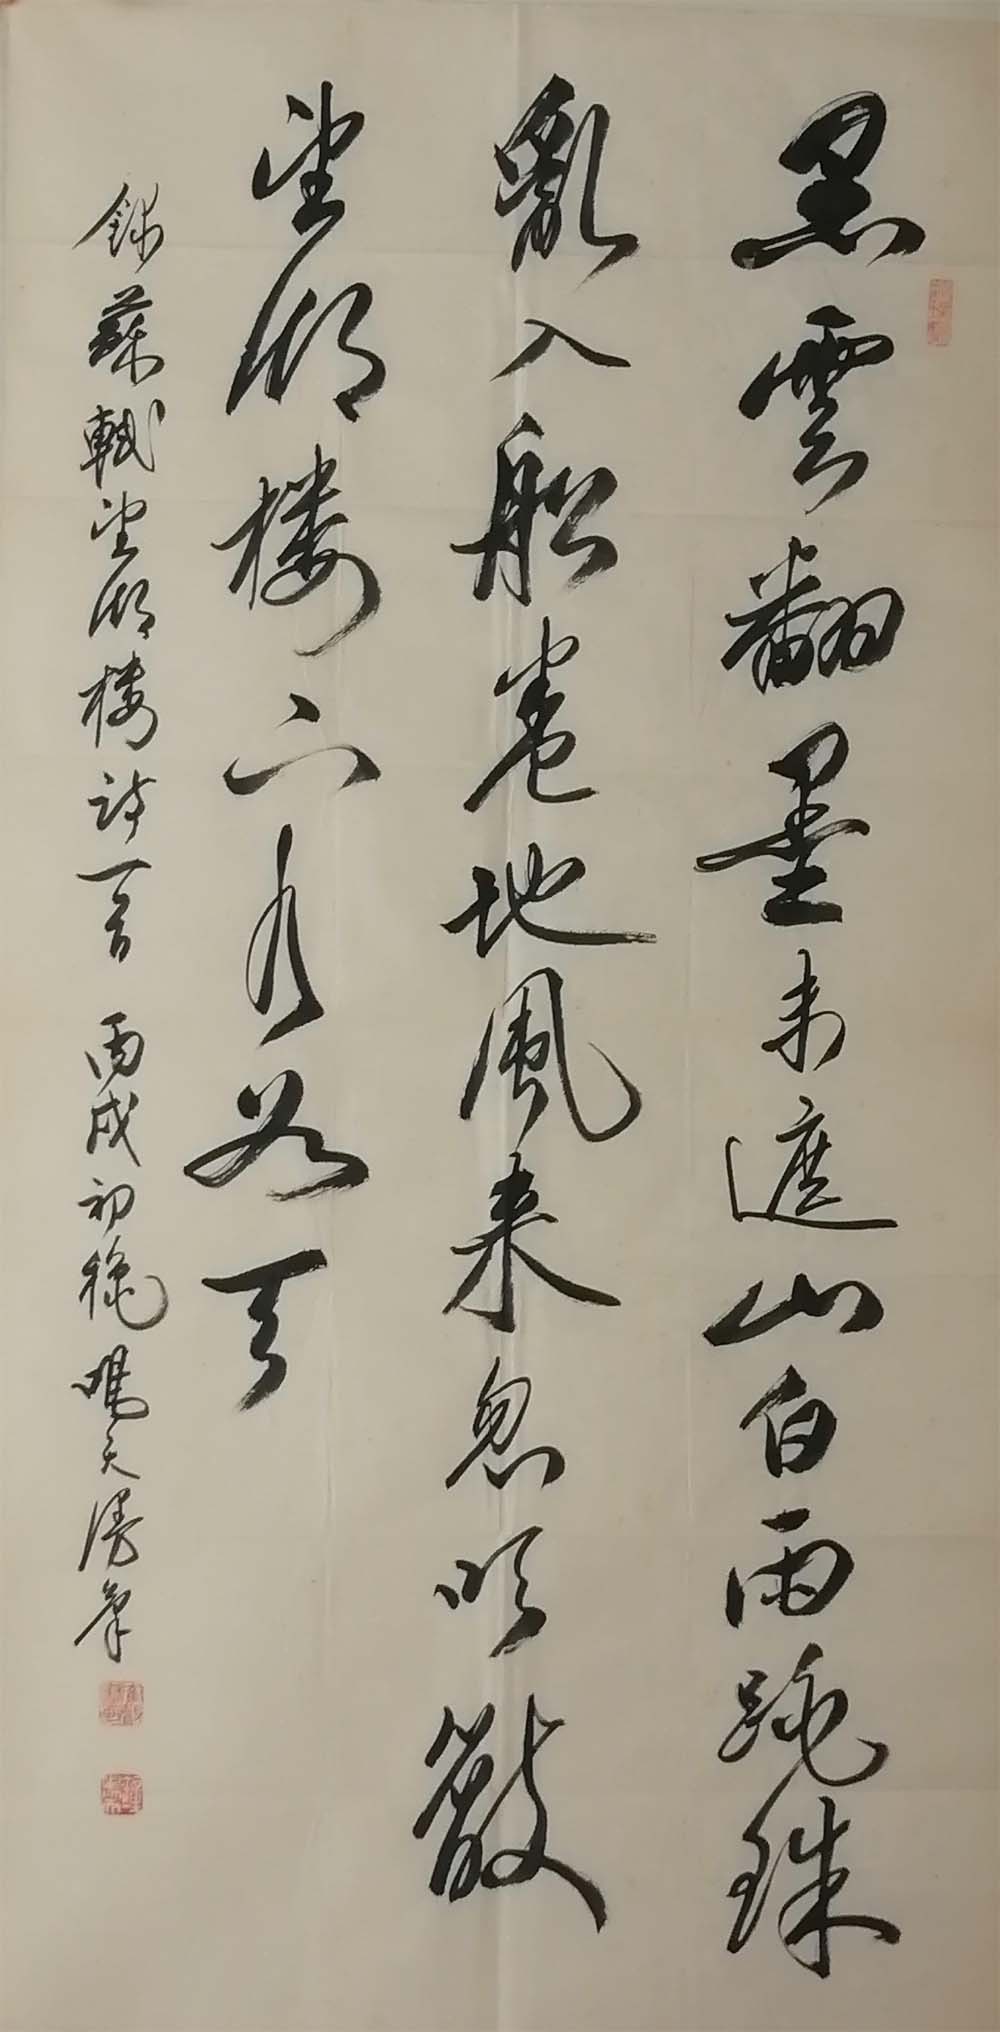 黑雲翻墨未遮山白雨跳珠
亂入船卷地風来忽吹散
望湖楼下水如天
錄蘇軾望湖楼詩一首 丙戌初穐